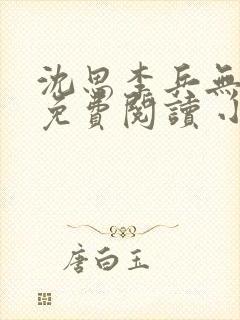 沈思李兵無
免費閱讀小
唐白玉